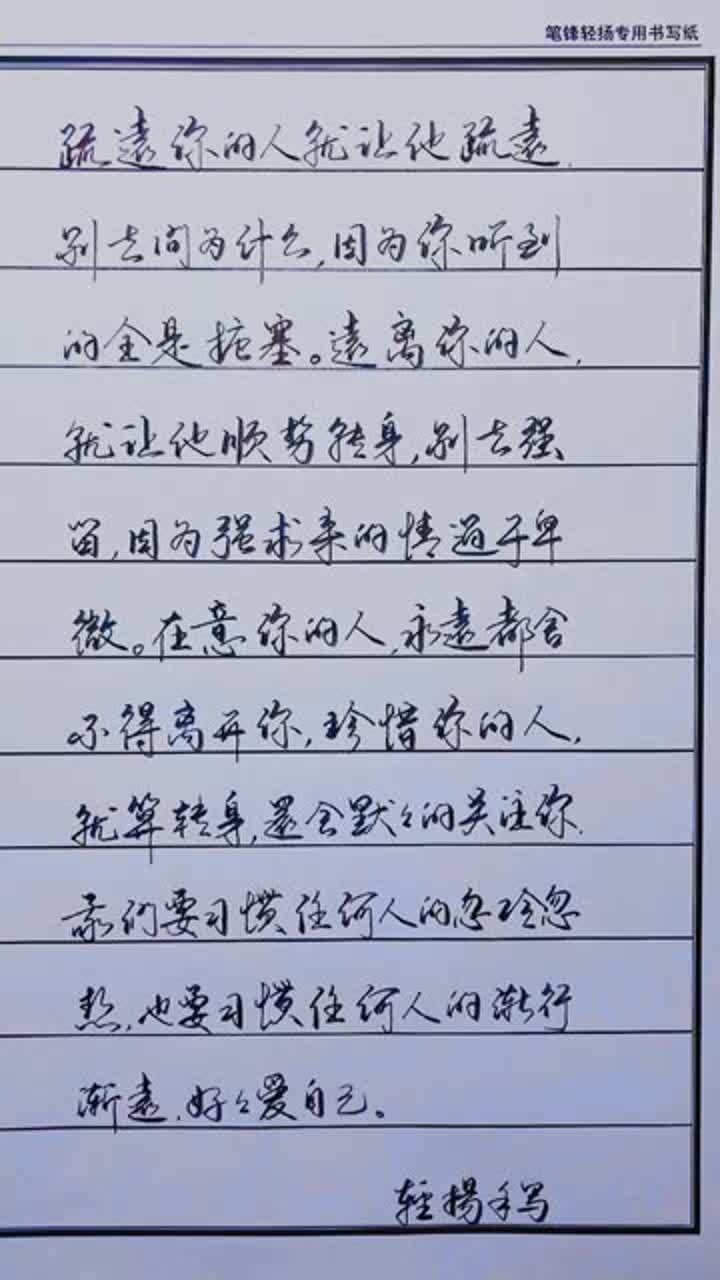 笔锋轻扬专用书写纸
疏遠你的人就让他疏遠,
别去问为什么,因为你听到
的全是搪塞。遠离你的人,
就让他顺势转身,别去强
留,因为强求来的情过于卑
微。在意你的人,永遠都舍
不得离开你,珍惜你的人,
就算转身,還会默々的关注你.
我们要习惯任何人的忽冷忽
热,也要习惯任何人的渐行
渐遠,好々爱自己。
轻揚手写